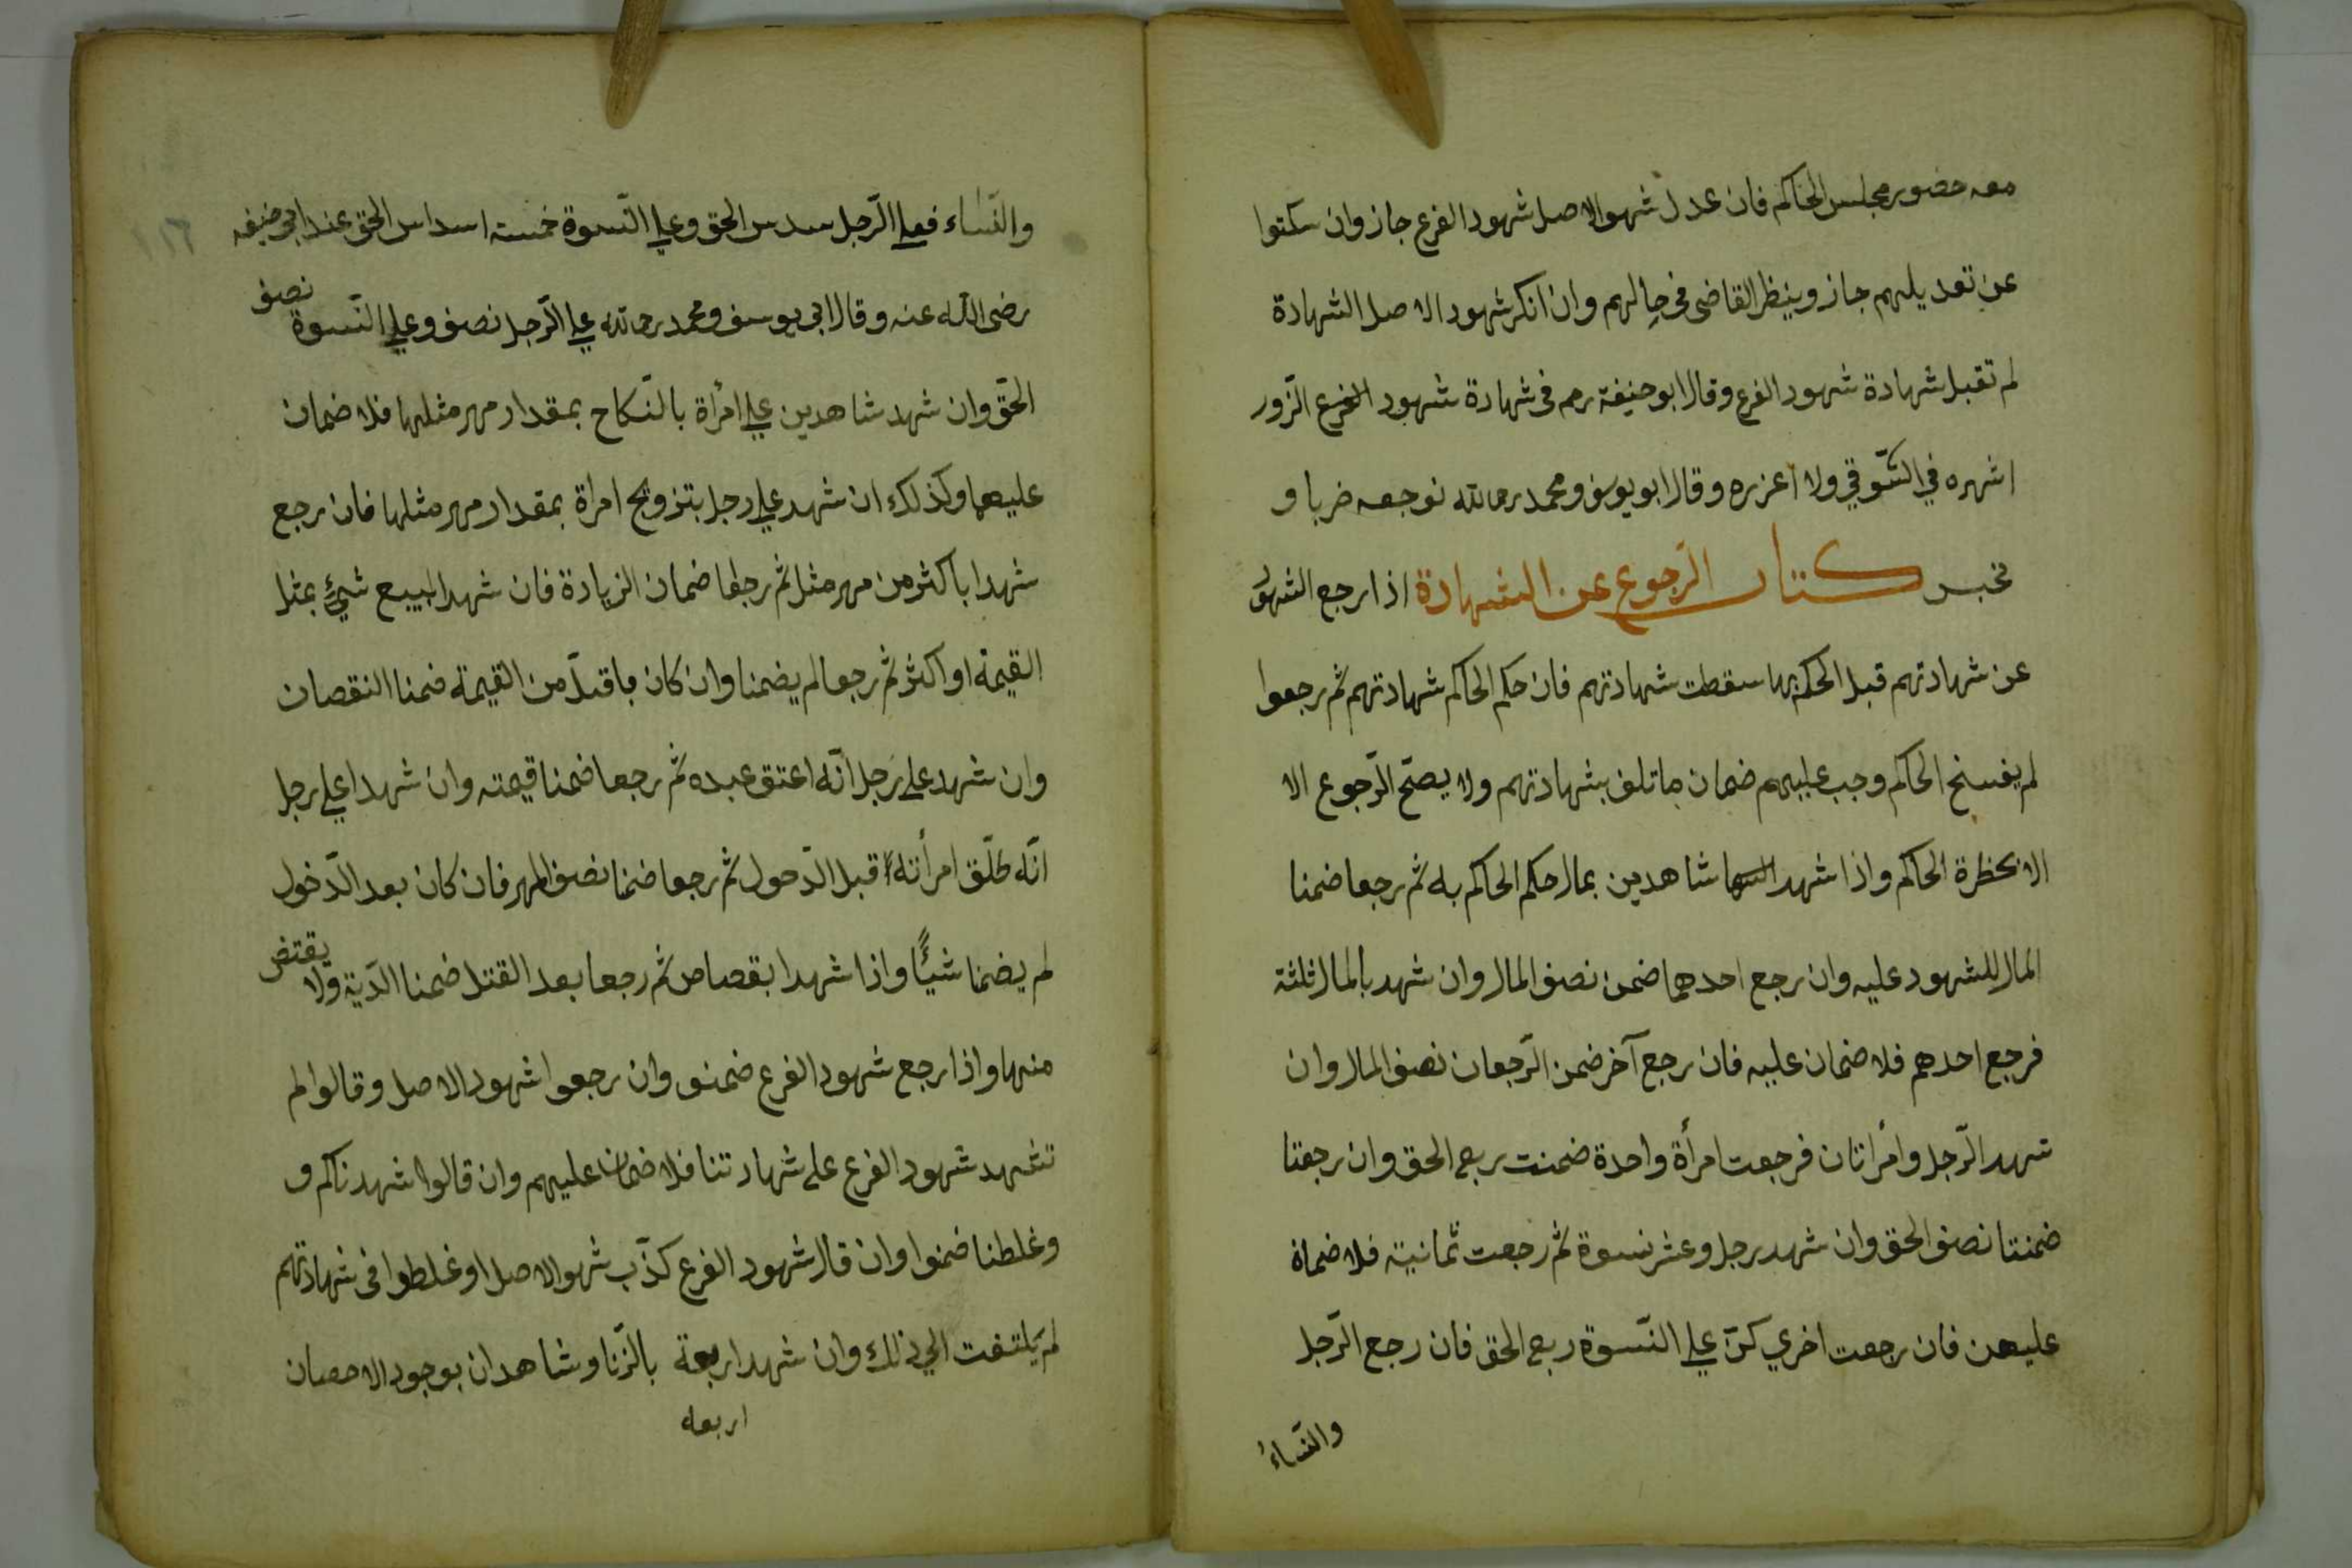 معه حضور مجلس الحاكم فان عدل شهوالاصل شهود الفرع جاز وان سكتوا
عن تعديلهم جاز وينظر القاضى فى حالهم وان انكر شهود الاصل الشهادة
لم تقبل شهادة شهود الفرع وقال ابو حنيفة رحمه فى شهادة شهود الفرع الزّور
اشهره في السّوقي ولا اعزره وقال ابو يوسف ومحمد رحمالله نوجعه ضربا و
نخبس كتاب الرّجوع عن الشهادة اذا رجع الشهود
عن شهادتهم قبل الحكم بها سقطت شهادتهم فان حكم الحاكم شهادتهم ثم رجعوا
لم يفسخ الحاكم وجب عليهم ضمان ما تلف بشهادتهم ولا يصحّ الرّجوع الا
الا بحظرة الحاكم واذا شهد شاهدين بمال حكم الحاكم به ثم رجعا ضمنا
المال للشهود عليه وان رجع احدهما ضمن نصف المال وان شهد بالمال ثلثة
فرجع احدهم فلا ضمان عليه فان رجع آخر ضمن الرّجعان نصف المال وان
شهد الرّجل وامراتان فرجعت امرأة واحدة ضمنت ربع الحق وان رجعتا
ضمنتا نصف الحق وان شهد رجل وعشر نسوة ثم رجعت ثمانية فلا ضمان
عليهن فان رجعت اخري كنّ علي النّسوة ربع الحق فان رجع الرّجل
والنّساءُ
١١٦
والنّساء فعلي الرّجل سدس الحق وعلي النّسوة خمسة اسداس الحق عند ابى حنيفه
رضى اللّه عنه وقال ابى يوسف ومحمد رحمالله علي الرّجل نصف وعلي النّسوة نصف
الحقّ وان شهد شاهدين علي امرأة بالنّكاح بمقدار مهر مثلها فلا ضمان
عليهما وكذلك ان شهد علي رجل بتزويج امراة بمقدار مهر مثلها فان رجع
شهدا باكثر من مهر مثل ثم رجعا ضمان الزيادة فان شهدا ببيع شيئ بمثل
القيمة او اكثر ثم رجعا لم يضمنا وان كان باقلّ من القيمة ضمنا النقصان
وان شهد على رَجل انّه اعتق عبده ثم رجعا ضمنا قيمته وان شهدا على رجل
انّه طلّق امرأته قبل الدّحول ثم رجعا ضمنا نصف المهر فان كان بعد الدّخول
لم يضمنا شيئًا واذا شهدا بقصاص ثم رجعا بعد القتل ضمنا الدّية ولا يقتض
منها واذا رجع شهود الفرع ضمنو وان رجعوا شهود الاصل وقالوا لم
تشهد شهود الفرع على شهادتنا فلا ضمان عليهم وان قالوا شهدناكم و
وغلطنا ضمنوا وان قال شهود الفرع كذّب شهوالاصل او غلطوا فى شهادتهم
لم يَلتفت الي ذلك وان شهد اربعة بالزّنا وشاهدان بوجود الاحصان
اربعه